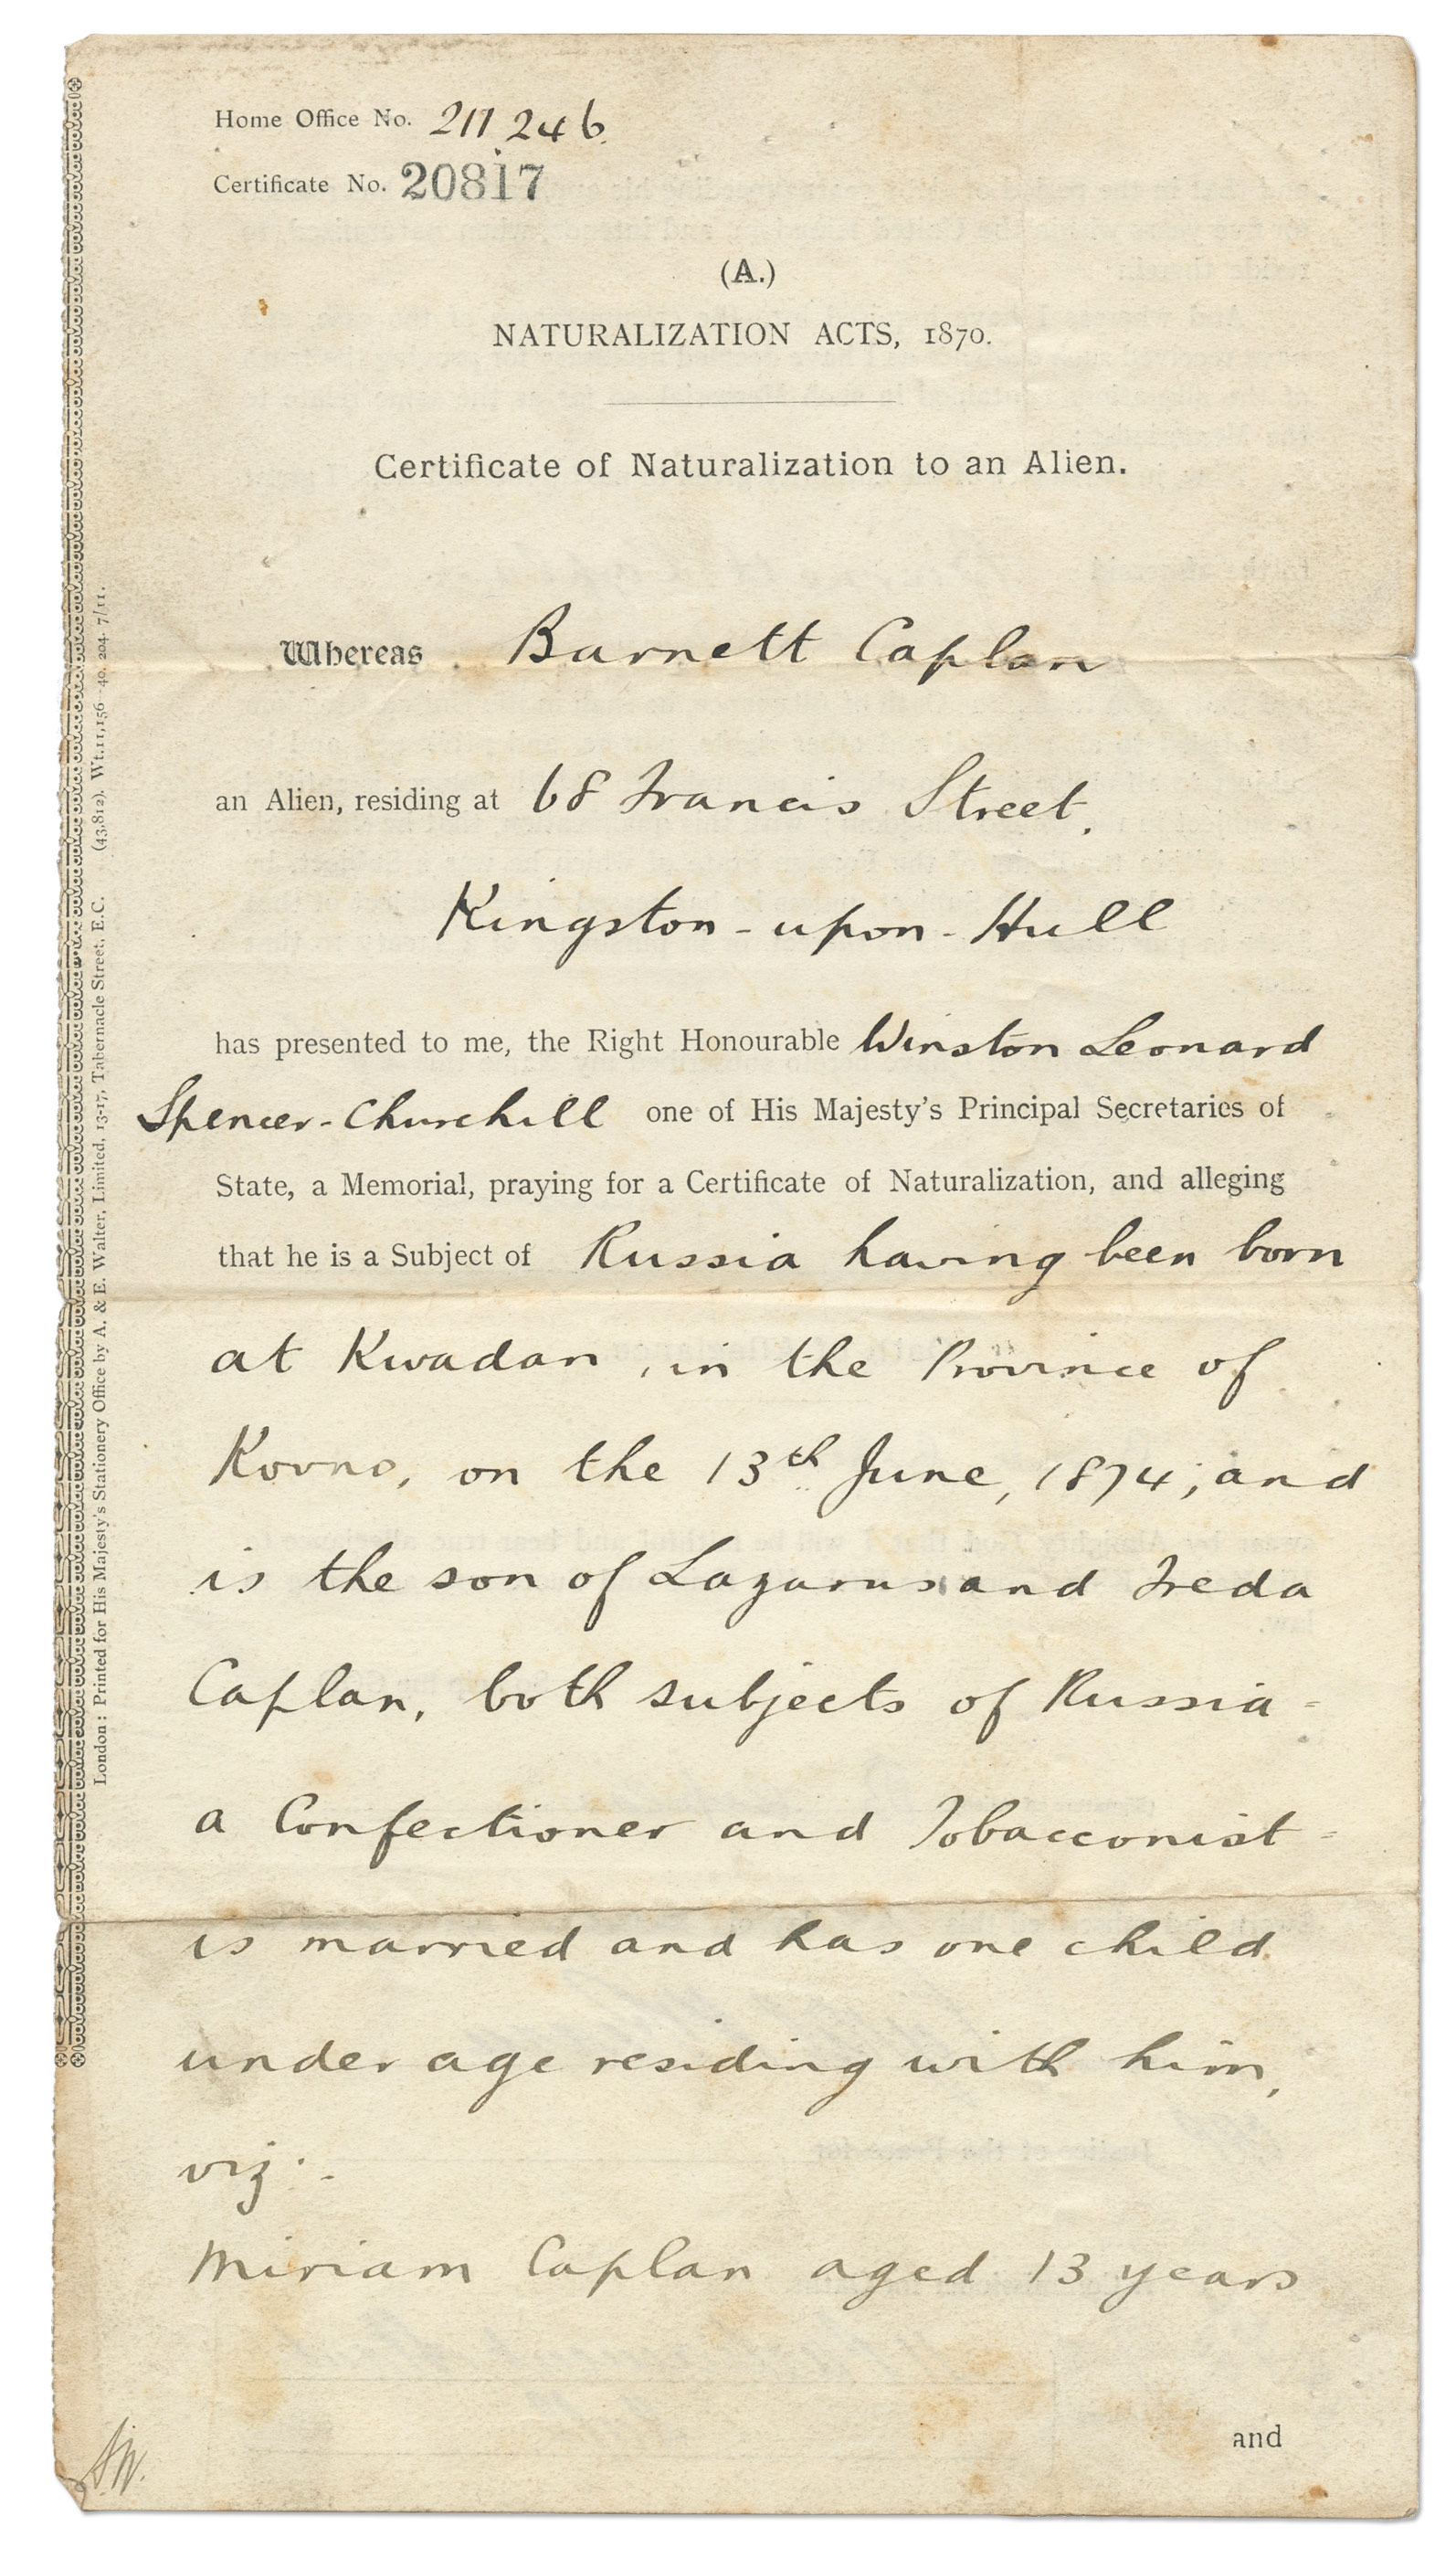 Home Office No. 211 246.
Certificate No. 20817
(A.)
NATURALIZATION ACTS, 1870.
Certificate of Naturalization to an Alien.
Whereas Barnett Caplan
an Alien, residing at 68 Francis Street,
Kingston-upon-Hull
has presented to me, the Right Honourable Winston Leonard
Spencer-Churchill one of His Majesty's Principal Secretaries of
State, a Memorial, praying for a Certificate of Naturalization, and alleging
that he is a Subject of Russia having been born
at Kwadan, in the Province of
Kovno, on the 13th June, 1874; and
is the son of Lazarus and Freda
Caplan, both subjects of Russia -
a Confectioner and Tobacconist -
is married and has one child
under age residing with him,
viz:-
Miriam Caplan aged 13 years
and
London: Printed for His Majesty's Stationery Office by A. & E. Walter, Limited, 13-17, Tabernacle Street, E.C. (43,812). Wt.11,156—40,204. 7/11.